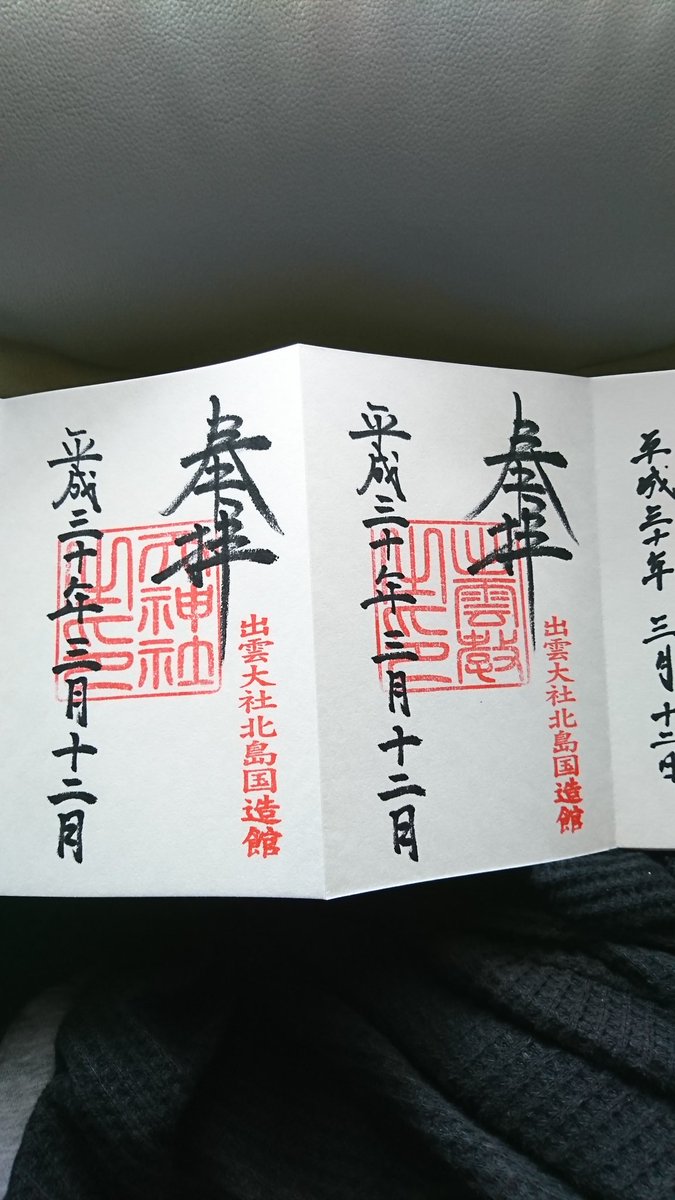 平成三十年 三月十二日
奉拝
出雲大社北島国造館
出雲教
之印
平成三十年三月十二日
奉拝
出雲大社北島国造館
天神社
之印
平成三十年三月十二日